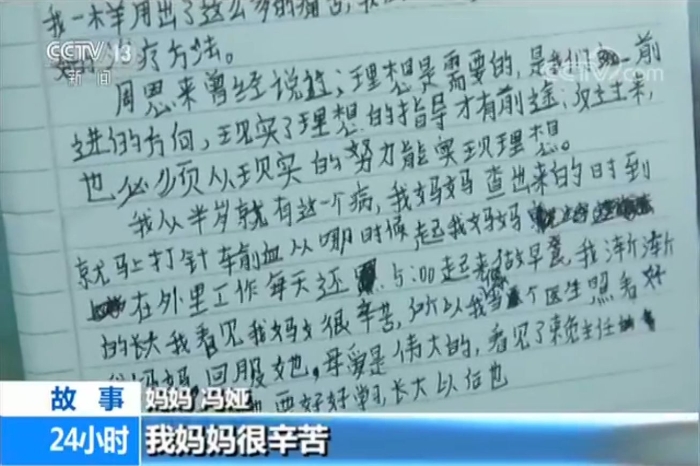 我一样用出了这么多的
CCTV 13
新闻
CCTV.com
疗方法。
周恩来曾经说过;理想是需要的,是我们 前
进的方向,现实了理想的指导才有前途,反过来,
也必须从现实的努力能实现理想。
我从半岁就有这一个病,我妈妈查出来的时到
就马上打针车输血从哪时候起我妈妈
在外里工作每天还 5:00起来做早餐,我渐渐
的长大我看见我妈妈很辛苦,所以我当个医生照看好
我妈妈,回服她,母爱是伟大的,看见了 主任
要好好学习,长大以后也
故事 妈妈 冯娅
24小时 我妈妈很辛苦